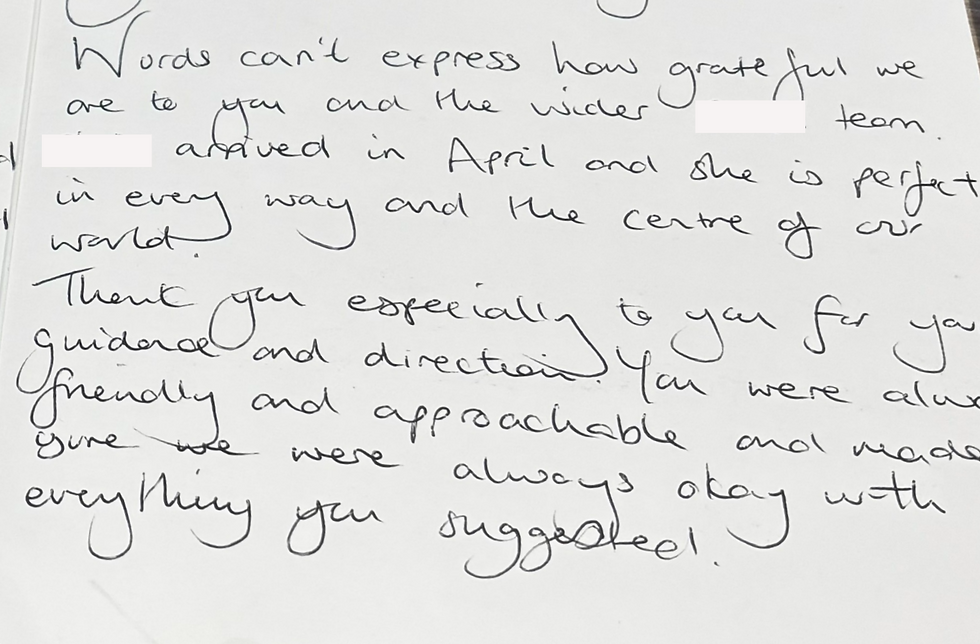 Words can't express how grateful we
are to you and the wider team.
arrived in April and she is perfect
in every way and the centre of our
world.
Thank you especially to you for you
guidance and direction. You were alwa
friendly and approachable and made
sure we were always okay with
everything you suggested.